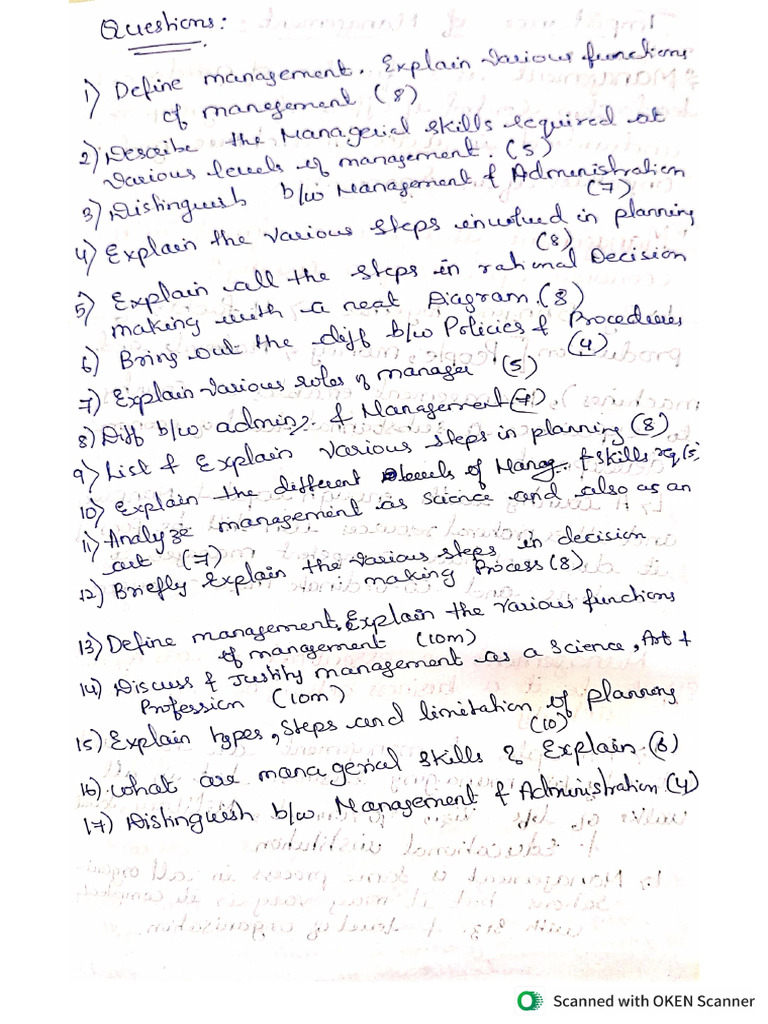 Questions:
1) Define management. Explain various functions
of management (8)
2) Describe the Managerial skills required at
various levels of management. (5)
3) Distinguish b/w Management & Administration
(7)
4) Explain the various steps involved in planning
(8)
5) Explain all the steps in rational Decision
making with a neat Diagram. (8)
6) Bring out the diff b/w Policies & Procedures
(4)
7) Explain various roles of manager (5)
8) Diff b/w admin, & Management (7)
9) List & Explain various steps in planning (8)
10) Explain the different levels of Manag. & skills req. (5)
11) Analyze management as science and also as an
art (7)
12) Briefly explain the various steps in decision
making Process (8)
13) Define management, Explain the various functions
of management (10m)
14) Discuss & Justify management as a Science, Art +
Profession (10m)
15) Explain types, steps and limitation of planning
(10)
16) What are managerial skills & Explain. (6)
17) Distinguish b/w Management & Administration (4)
Scanned with OKEN Scanner